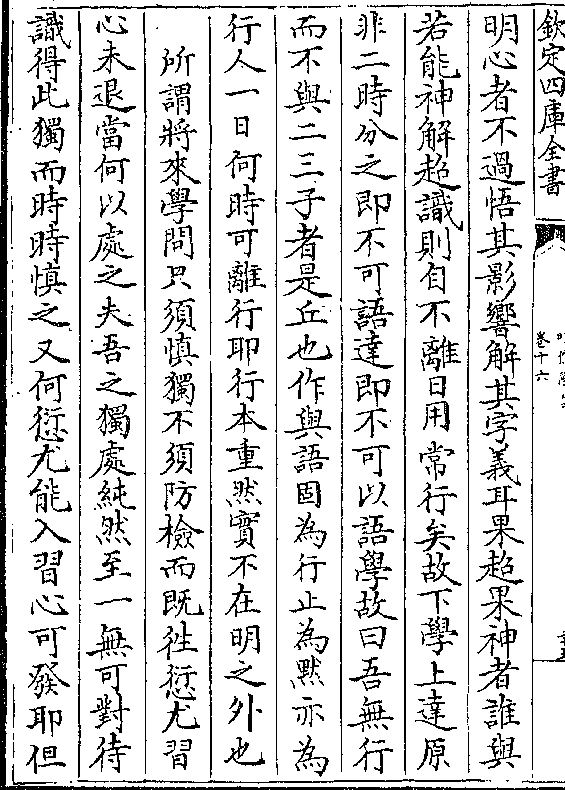 欽定四庫全書
卷十六
明心者不過悟其影響解其字義耳果超果神者誰與
若能神解超識則自不離日用常行矣故下學上達原
非二時分之即不可語達即不可以語學故曰吾無行
而不與二三子者是丘也作與語固為行止為黙亦為
行人一日何時可離行耶行本重然實不在明之外也
所謂將來學問只須慎獨不須防檢而既徃愆尤習
心未退當何以處之夫吾之獨處純然至一無可對待
識得此獨而時時慎之又何愆尤能入習心可發耶但